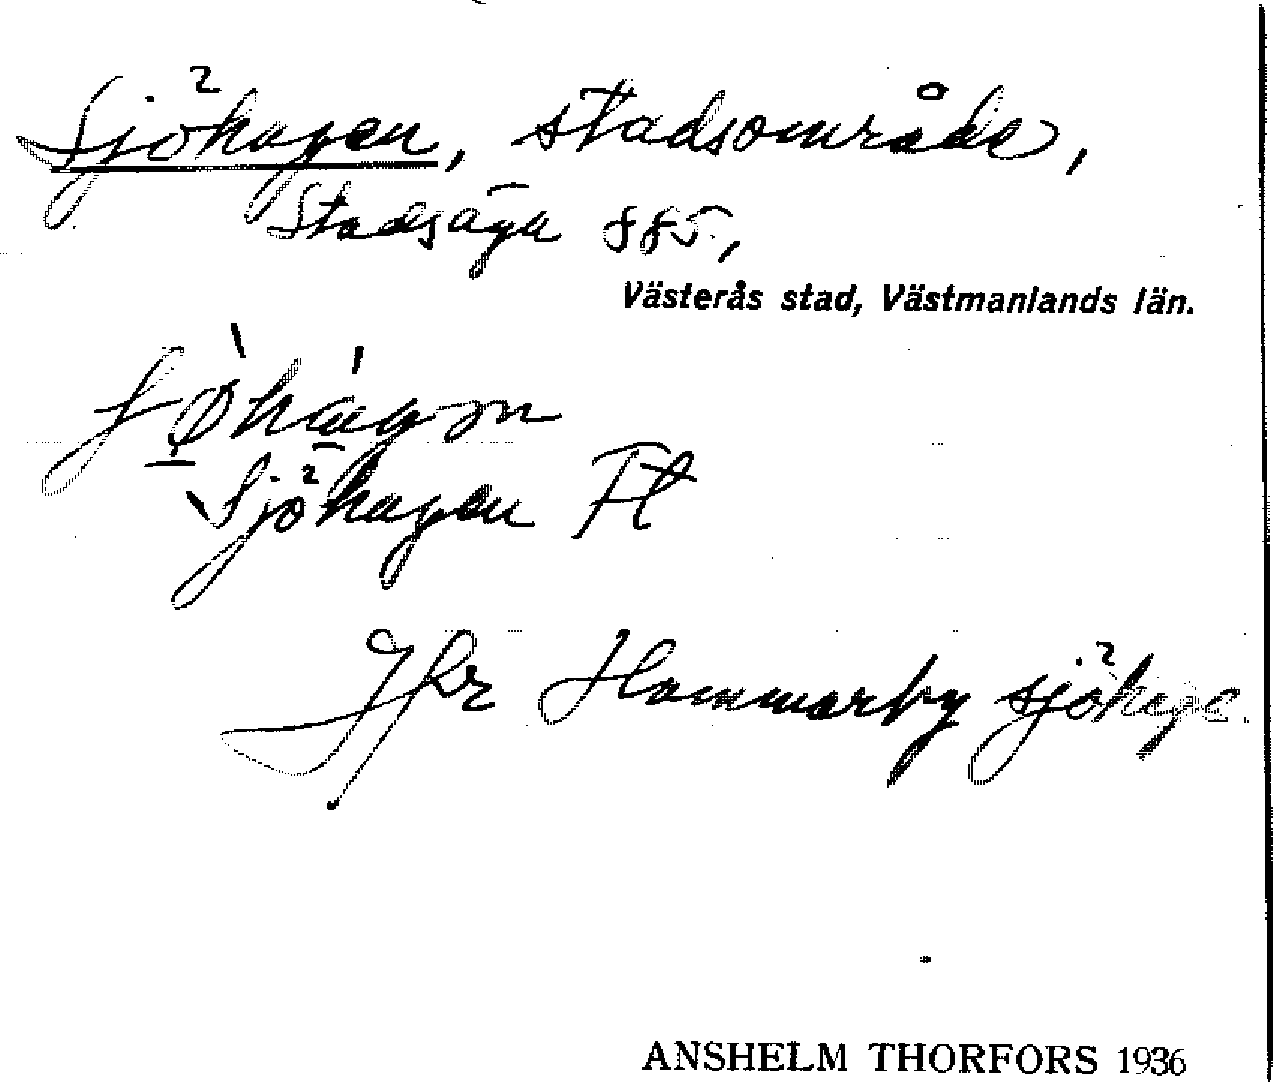 Sjöhagen, stadsområde,
Stadsäga 885,
Västerås stad, Västmanlands län.
Sjöhagen Fl
Jfr Hammarby sjöhage.
ANSHELM THORFORS 1936